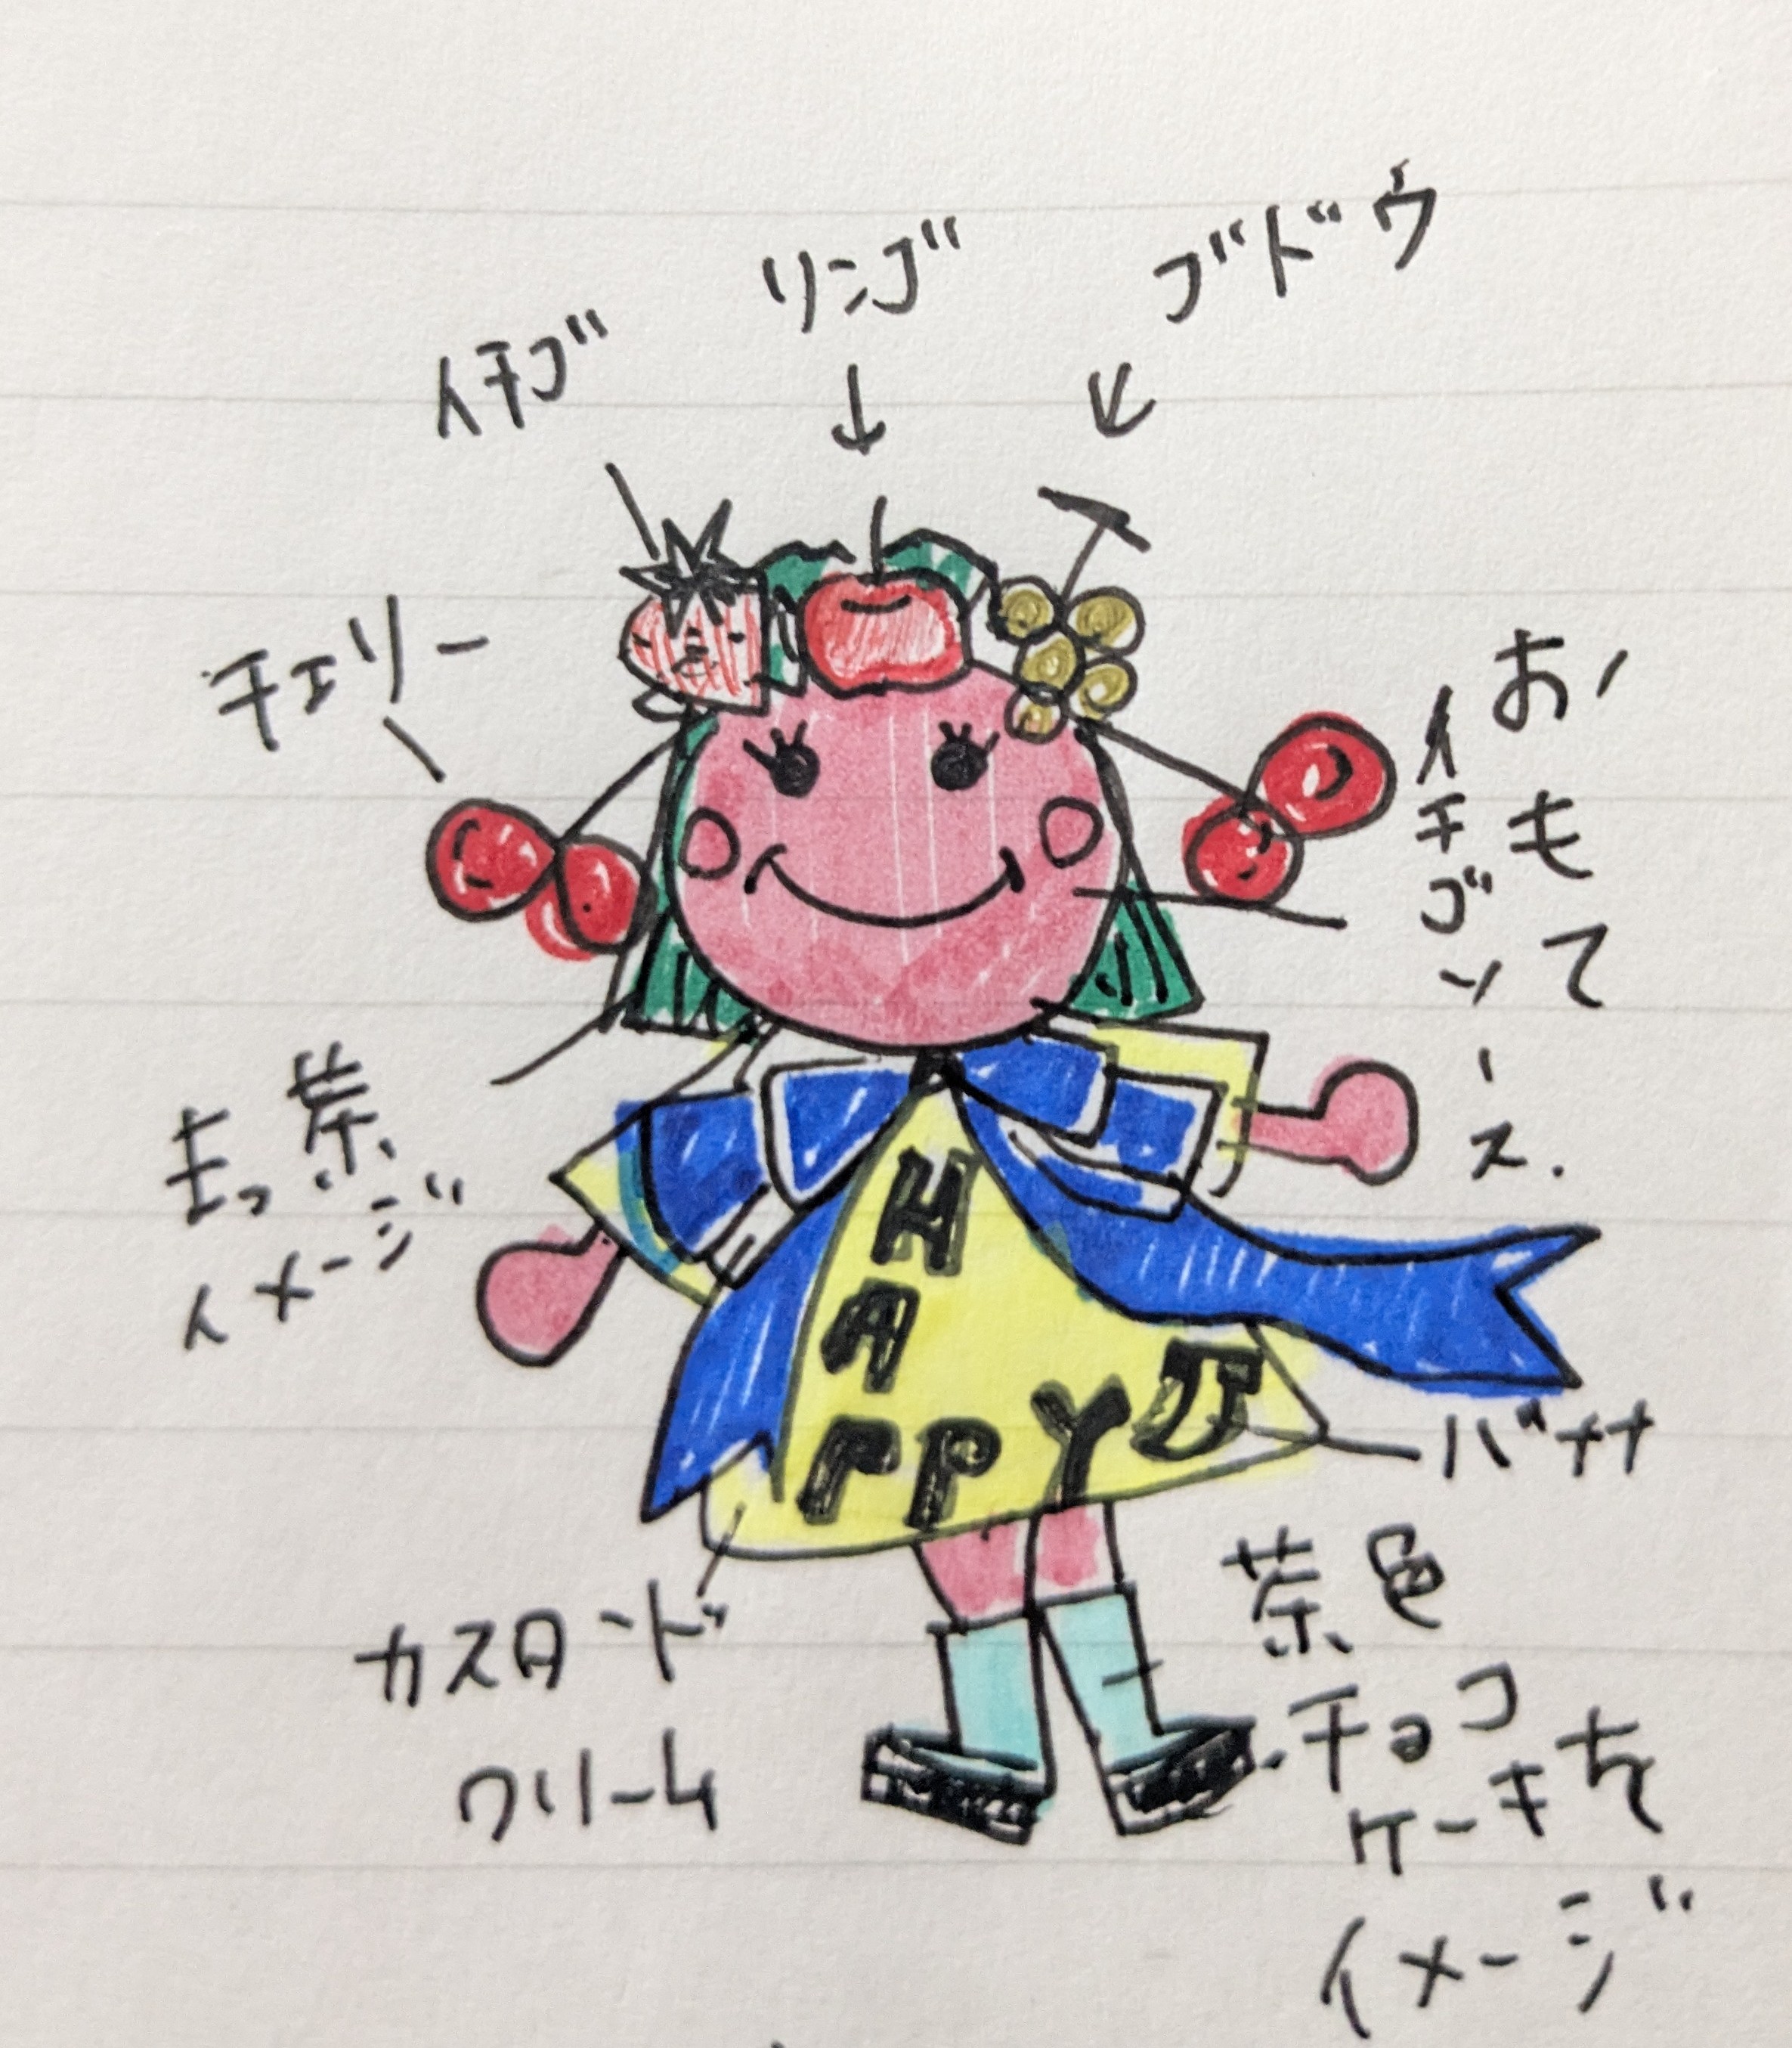 イチゴ
リンゴ
ブドウ
チェリー
おもて
イチゴソース.
まっ茶
イメージ
HAPPY
バナナ
カスタード
クリーム
茶色
チョコ
ケーキを
イメージ